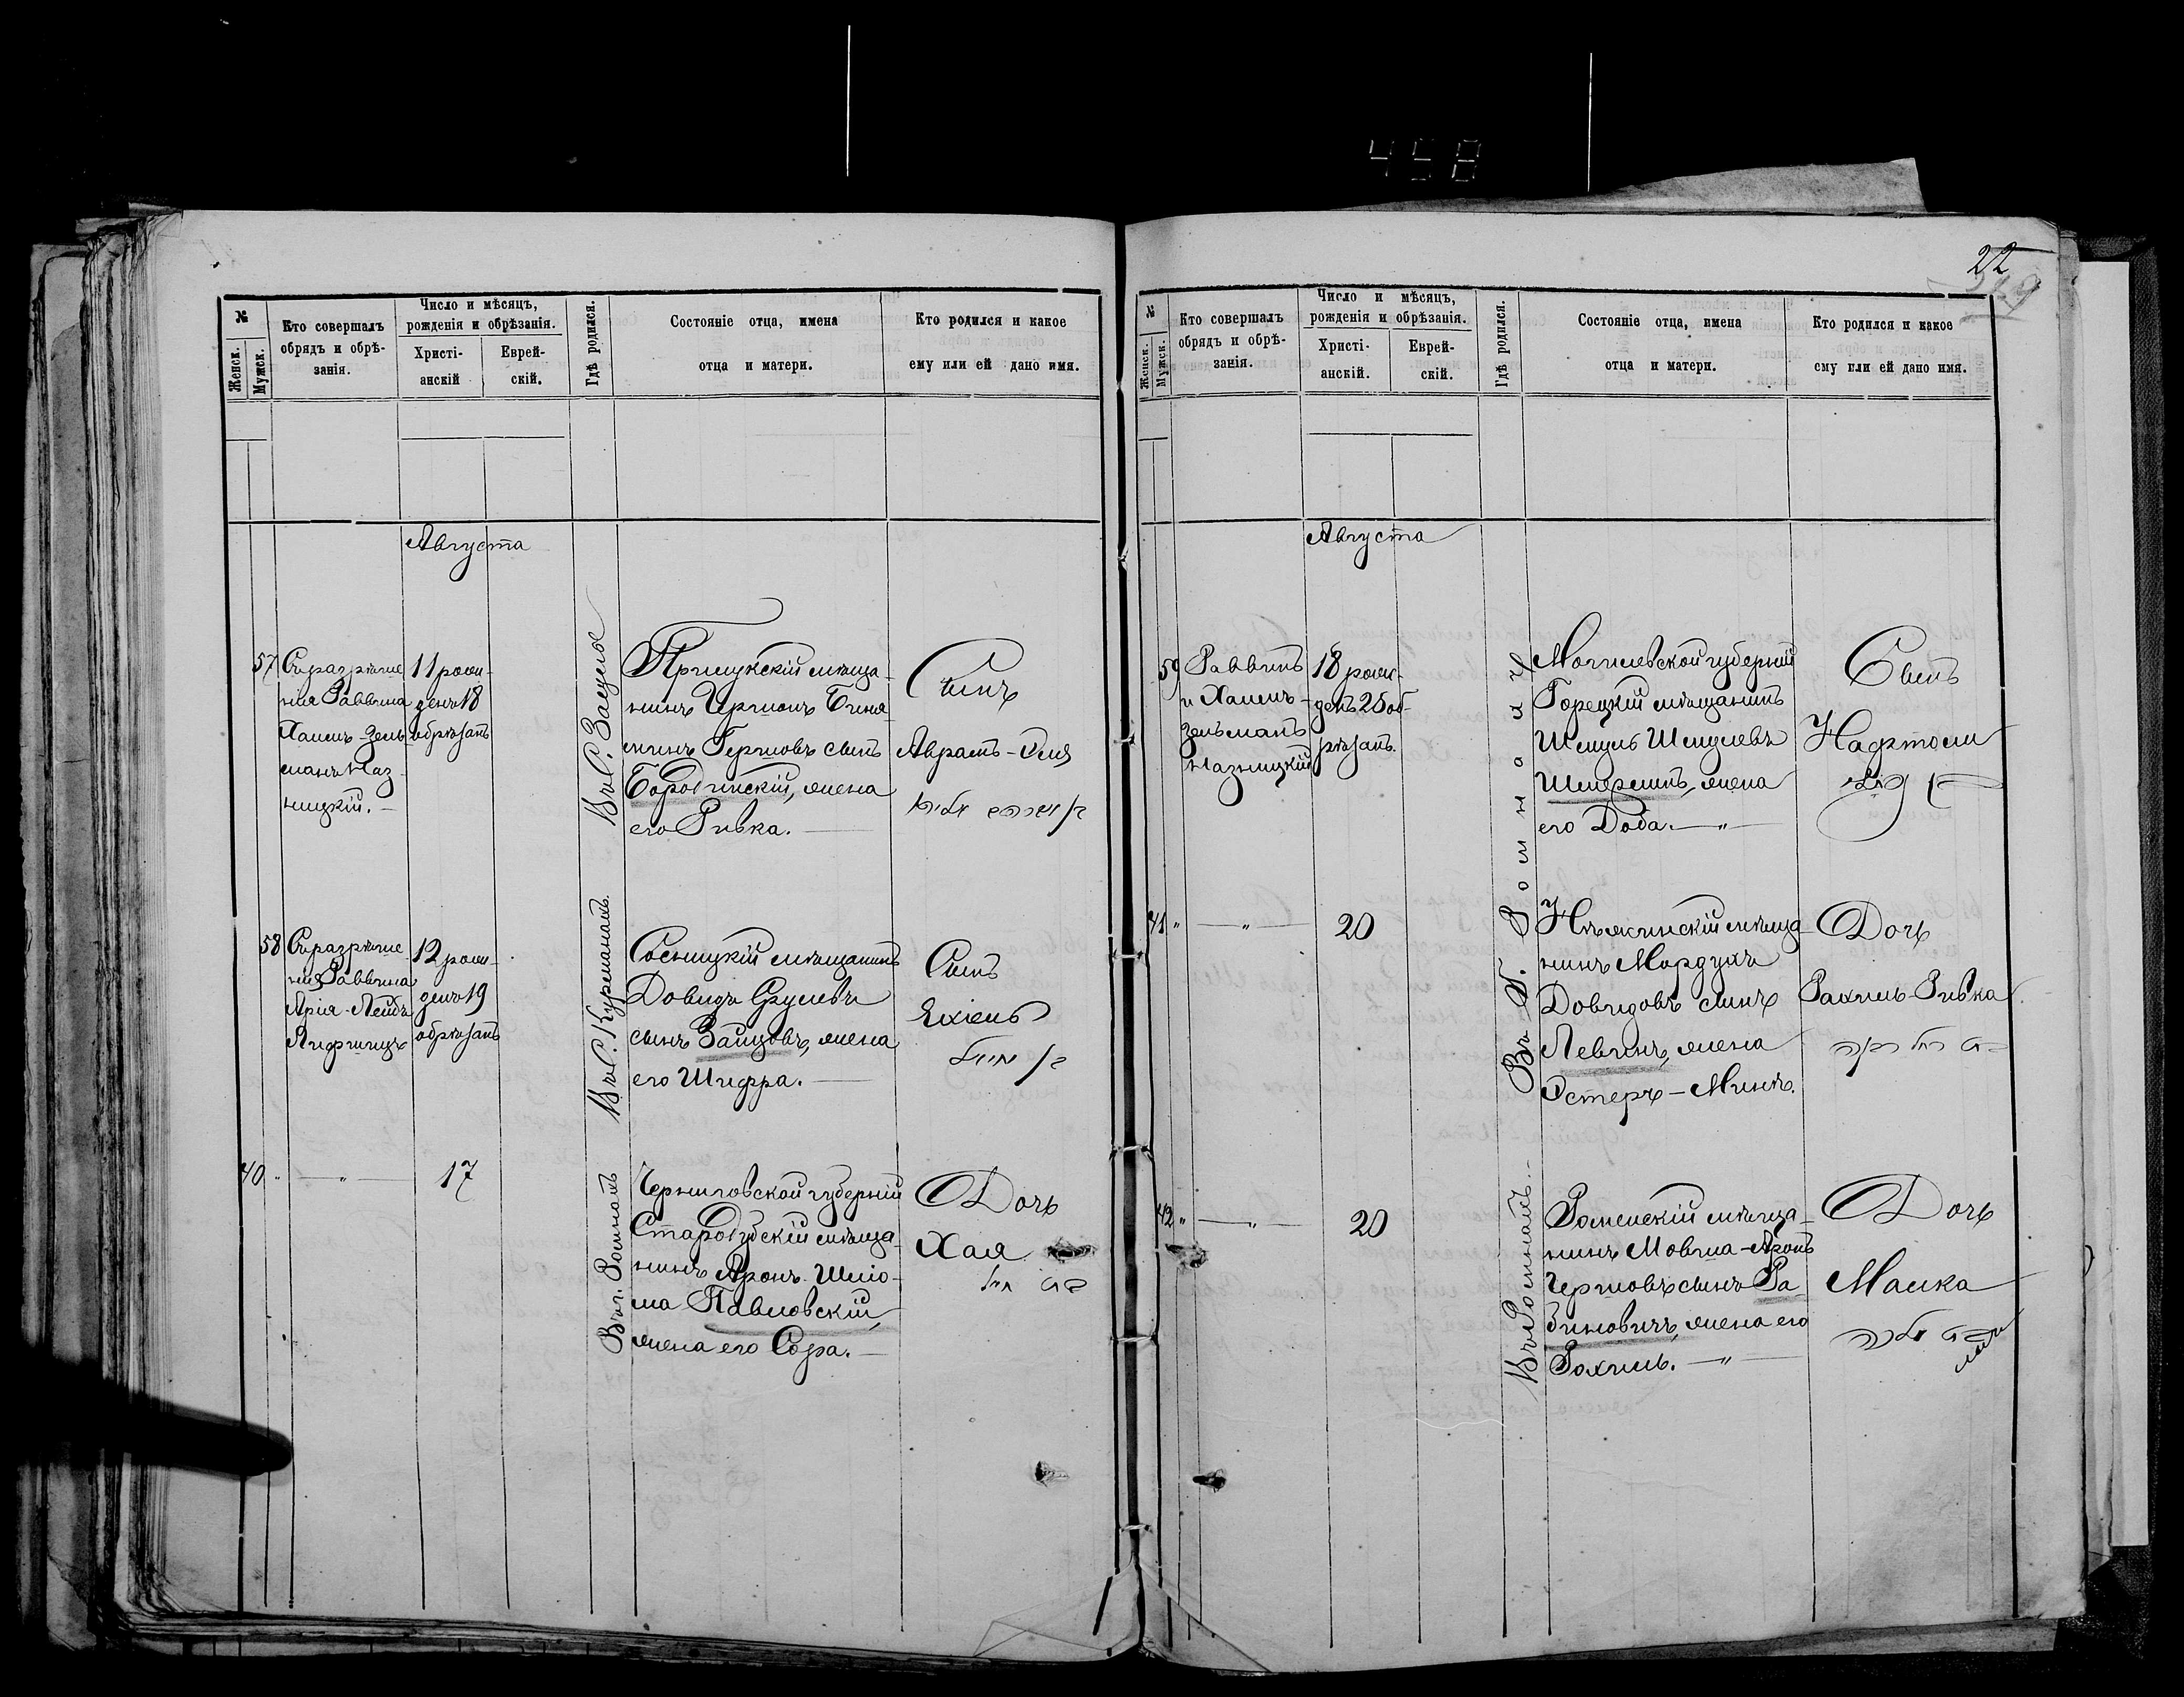 458
22
№
Женск.
Мужск.
Кто совершалъ
обрядъ и обрѣ-
занія.
Число и мѣсяцъ,
рожденія и обрѣзанія.
Христі-
анскій
Еврей-
скій.
Гдѣ родился.
Состояніе отца, имена
отца и матери.
Кто родился и какое
ему или ей дано имя.
Августа
57
Съ разрѣше
нія Раввина
Хаимъ-Зель
манъ Каз
ницкій.-
11 рож-
денъ 18
обрѣзанъ
Въ С.
Прилукскій мѣща-
нинъ Гершонъ Бинья
минъ Гершовъ сынъ
Бородинскій, жена
его Ривка.
Сынъ
Авраамъ-Элія
58
Съ разрѣше
нія Раввина
Арія-Лейбъ
Лифшицъ
12 рож-
денъ 19
обрѣзанъ
Въ С. Курманахъ.
Сосницкій мѣщанинъ
Довидъ Срулевъ
сынъ Зайцовъ, жена
его Шифра.
Сынъ
Ехіель
40 "
"
17
Въ г. Ромнахъ
Черниговской губерніи
Стародубскій мѣща-
нинъ Аронъ-Шліо-
ма Павловскій,
жена его Сора.
Дочь
Хая
№
Женск.
Мужск.
Кто совершалъ
обрядъ и обрѣ-
занія.
Число и мѣсяцъ,
рожденія и обрѣзанія.
Христі-
анскій.
Еврей-
скій.
Гдѣ родился.
Состояніе отца, имена
отца и матери.
Кто родился и какое
ему или ей дано имя.
Августа
59
Раввинъ
и Хаимъ-
Зельманъ
Казницкій
18 рож-
денъ 25 об-
рѣзанъ.
Въ г. Ромнахъ
Могилевской губерніи
Горецкій мѣщанинъ
Шмуль Шмулевъ
жена
его Доба. "
Сынъ
Нафтоли
41 "
"
20
Нѣжинскій мѣща-
нинъ Мордухъ
Довидовъ сынъ
Левинъ, жена
Эстеръ-Минъ.
Дочь
Рахиль-Ривка
בת רחל רבקה
42 "
"
20
Въ г. Ромнахъ.-
Роменскій мѣща-
нинъ Мовша-Аронъ
Гершовъ сынъ Ра-
биновичъ, жена его
Рахиль. "
Дочь
Малка
בת מלכה